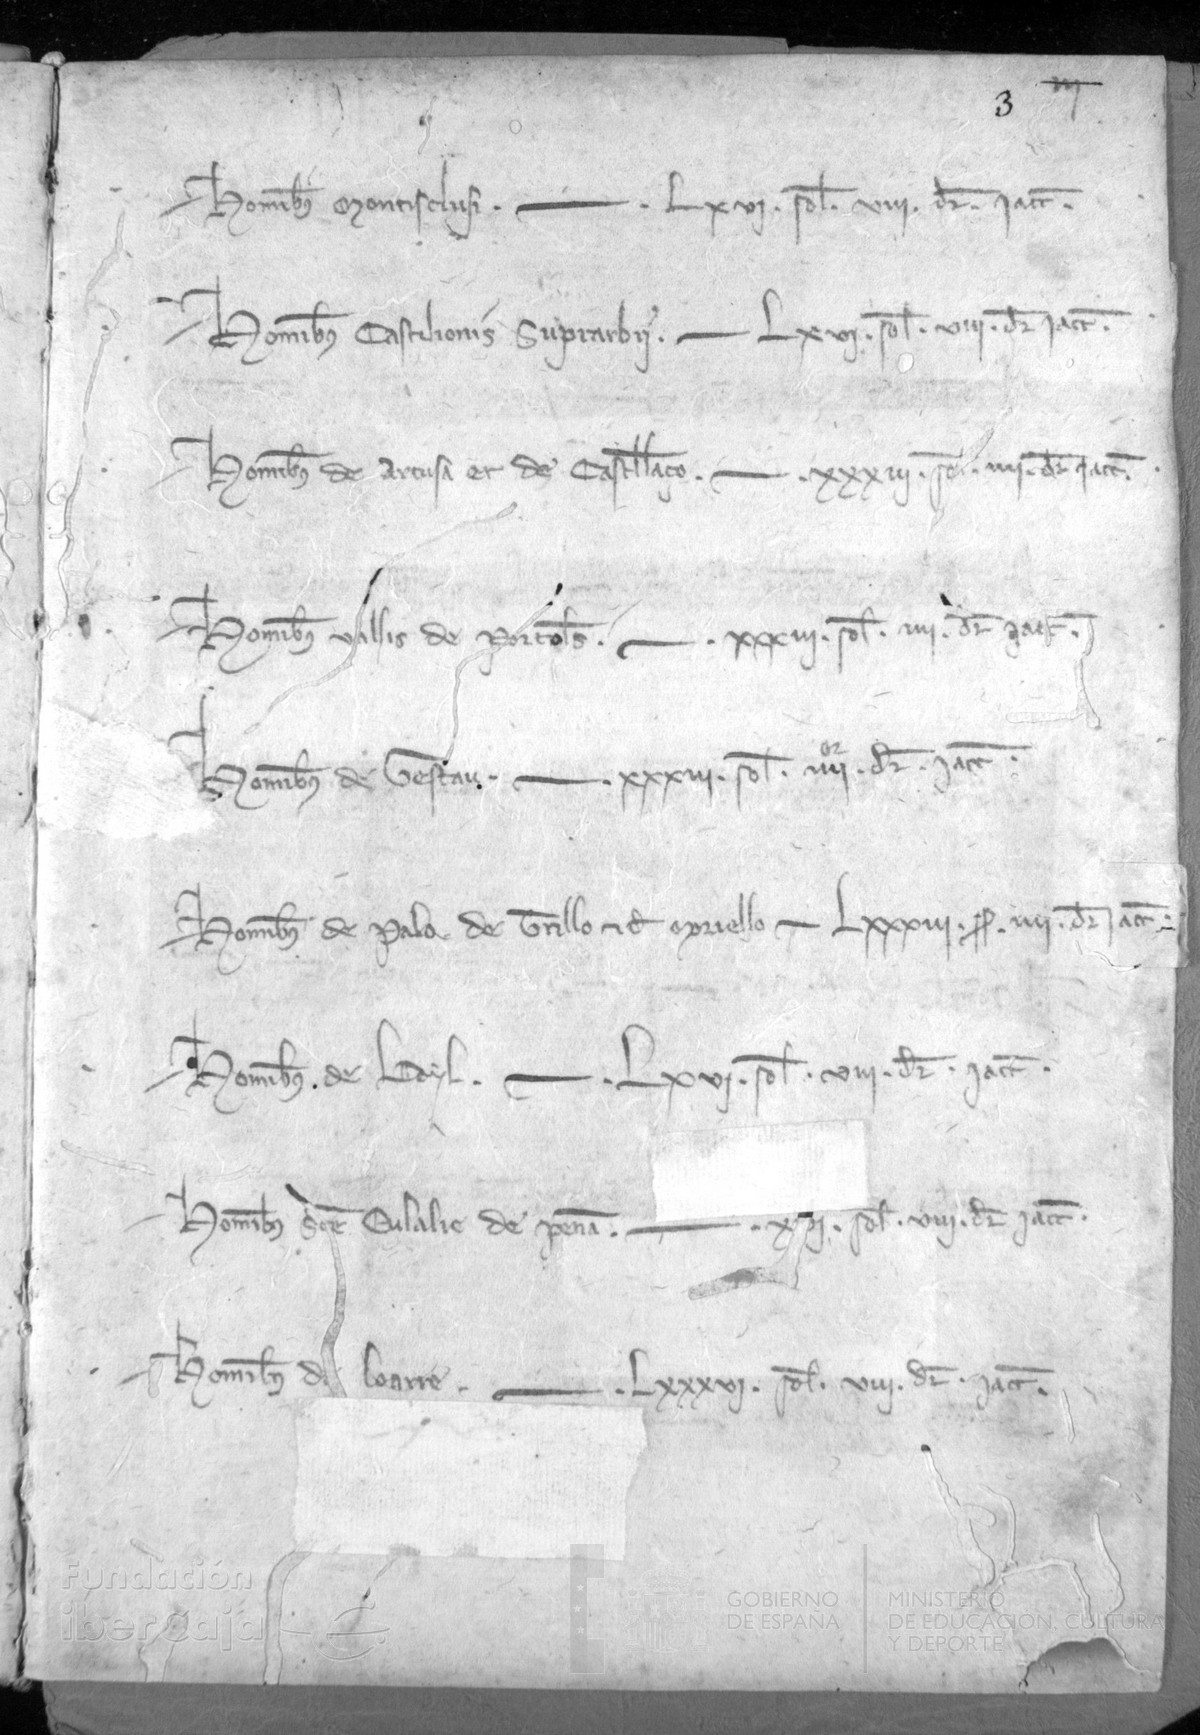 3 iij
Hominibꝯ Montisclusi · — · Lxvj · sol · viii · dr · jacc ·
Hominibꝯ Castilionis Suprarbij · — Lxvj · sol · viii · dr jacc ·
Hominibꝯ de Artusa et de Castllaço · — · xxxiij · sol · iiij · dr jacc ·
Hominibꝯ vallis de Portols · — · xxxiij · sol · iiij · dr jacc ·
Hominibꝯ de Gestau · — · xxxiii · sol · iiijor · dr · jacc ·
Hominibꝯ de Palo de Trillo et de — Lxxxiii · sol · iiij · dr jacc ·
Hominibꝯ · de Bayl · — · Lxvj · sol · viii · dr · jacc ·
Hominibꝯ Sce Eulalie de pena · — · sol · viii · dr jacc ·
Hominibꝯ de loarre · — · Lxxxvj · sol · viii · dr · jacc ·
Fundación
iberCaja
GOBIERNO
DE ESPAÑA
MINISTERIO
DE EDUCACIÓN, CULTURA
Y DEPORTE